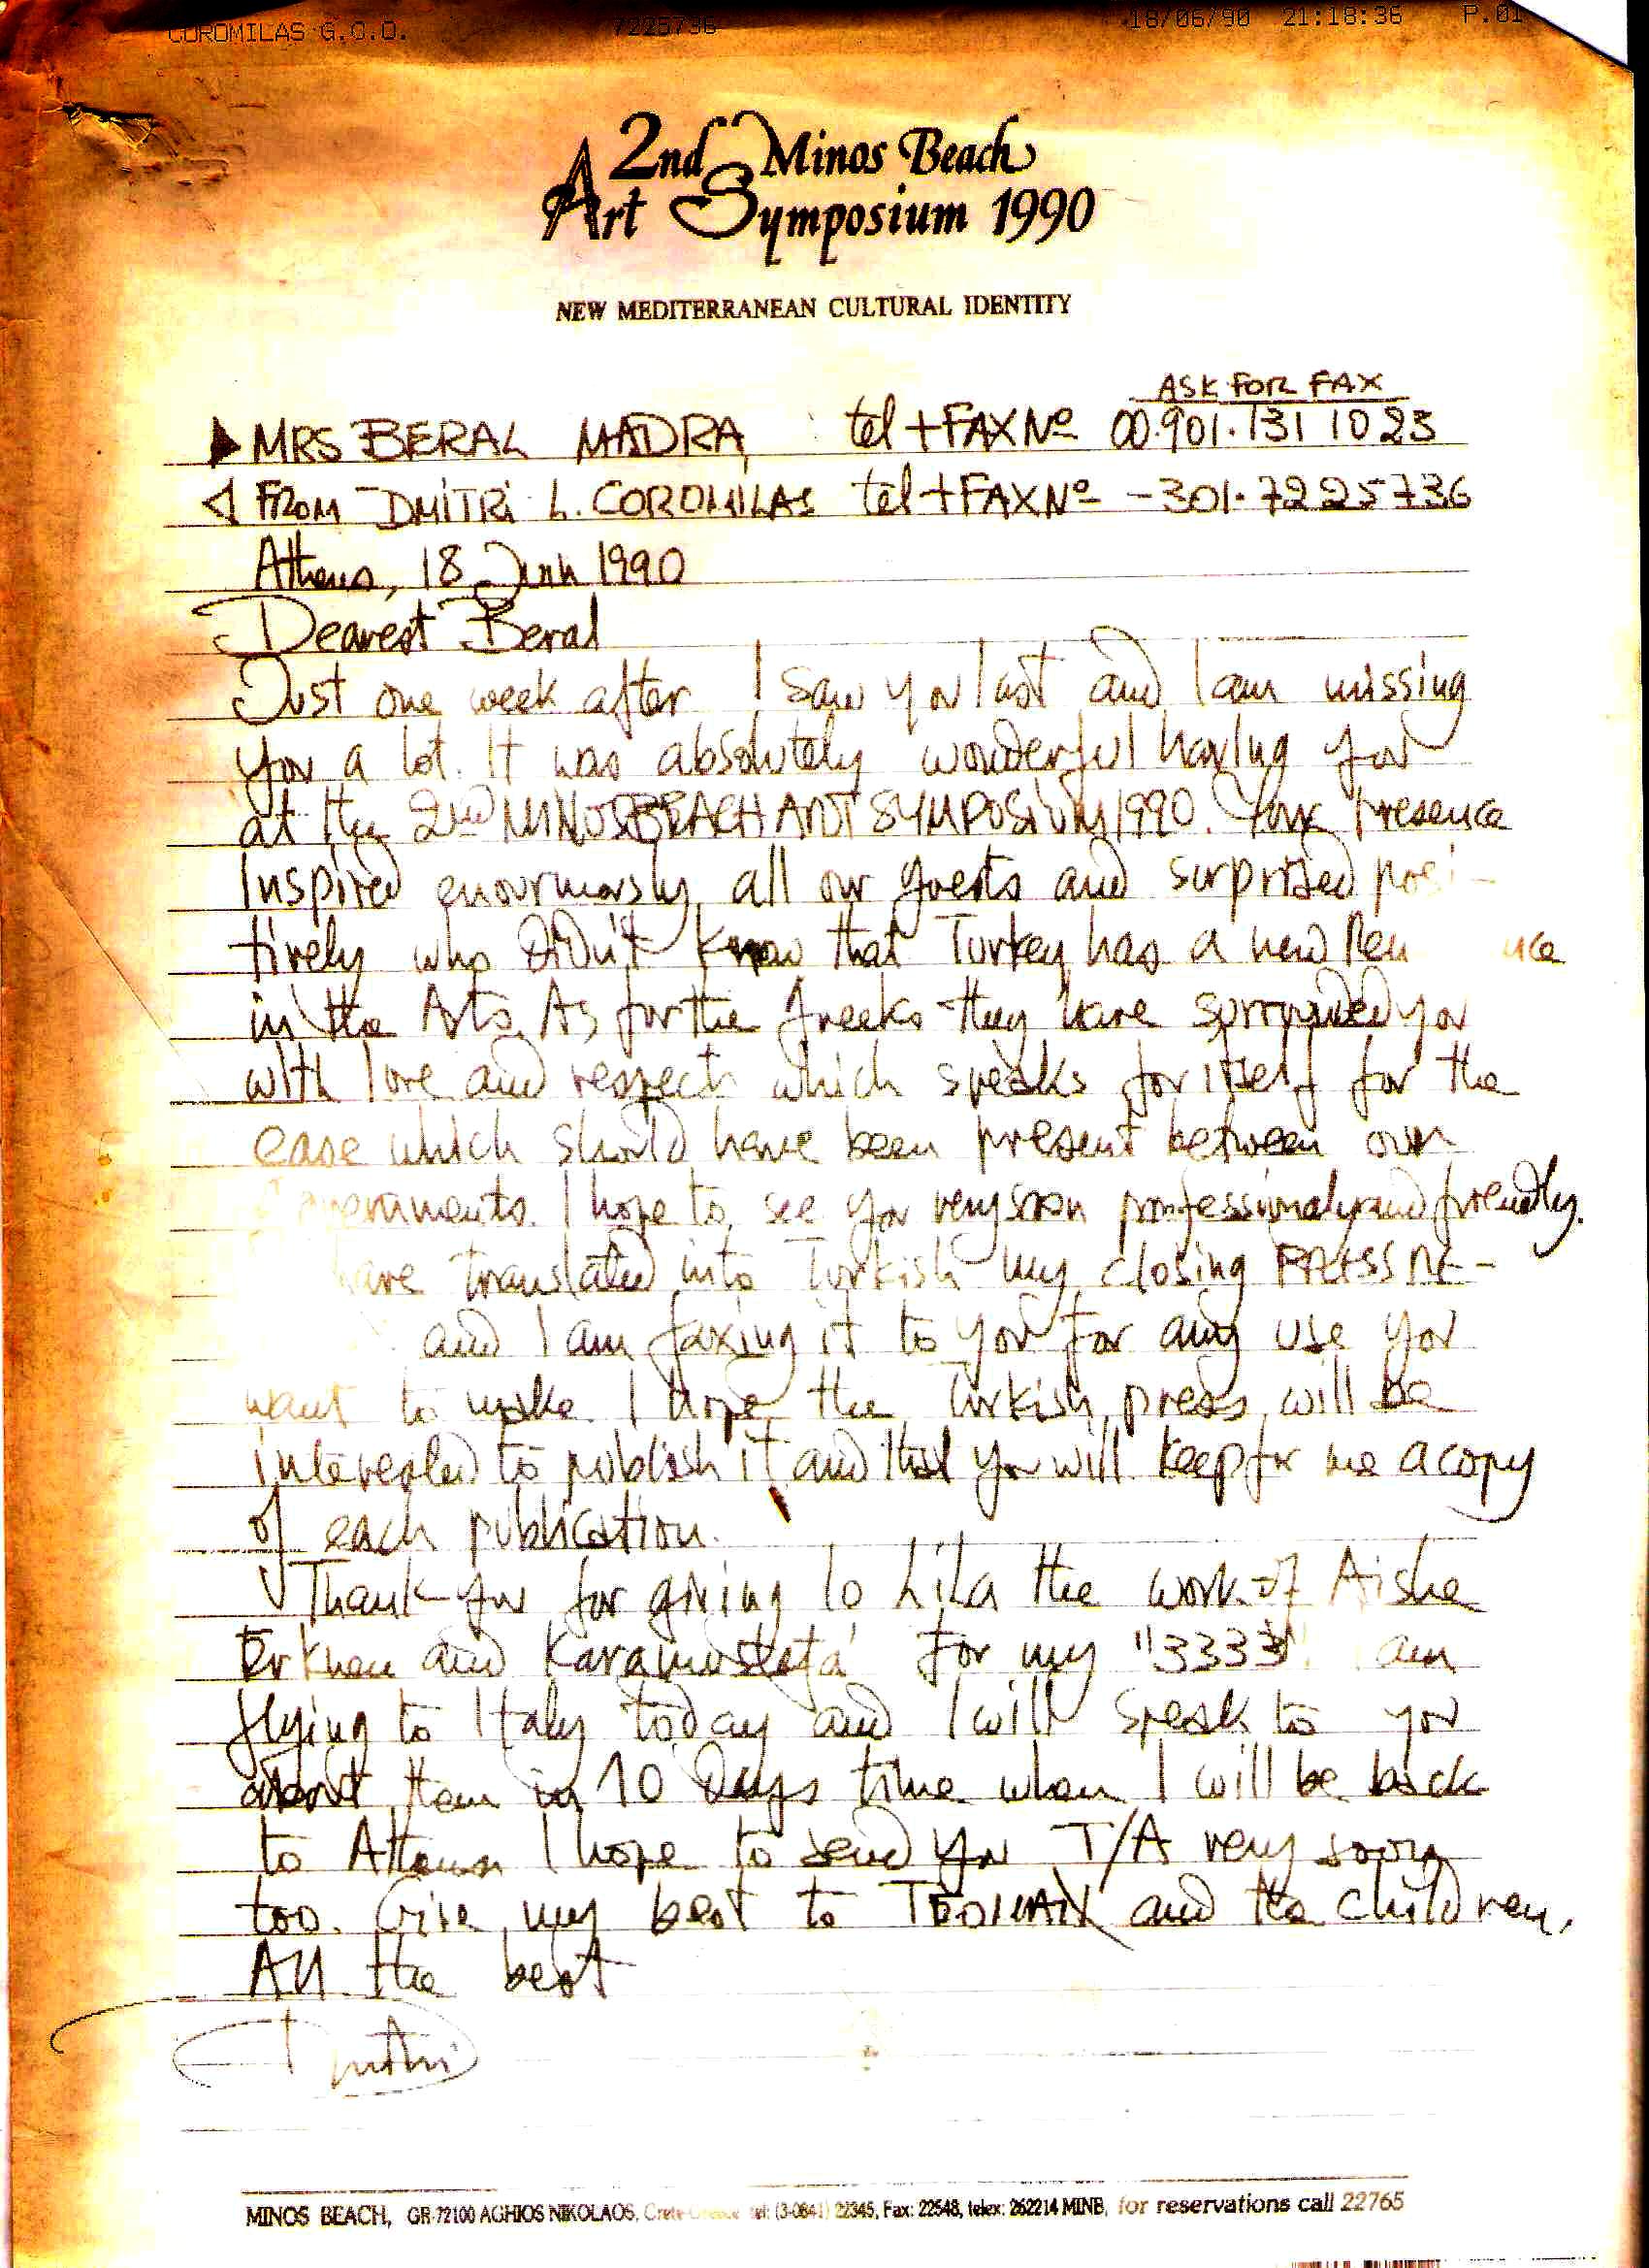 COROMILAS G.C.O. 7225736 18/06/90 21:18:36 P.01
2nd Minos Beach
Art Symposium 1990
NEW MEDITERRANEAN CULTURAL IDENTITY
ASK FOR FAX
MRS BERAL MADRA, tel + FAX Nº 00.901.131 1023
FROM DMITRI L. COROMILAS tel + FAX Nº -301.7225736
Athens, 18 June 1990
Dearest Beral
Just one week after I saw you last and I am missing
you a lot. It was absolutely wonderful having you
at the 2nd MINOS BEACH ART SYMPOSIUM 1990. Your presence
inspired enourmously all our guests and surprised posi-
tively who didn't know that Turkey has a new Ren nce
in the Arts. As for the Greeks they have surrounded you
with love and respect which speaks for itself for the
ease which should have been present between our
overnments. I hope to see you very soon professionaly and friendly.
have translated into Turkish my closing PRESS RE-
and I am faxing it to you for any use you
want to make. I hope the Turkish press will be
interested to publish it and that you will keep for me a copy
of each publication.
Thank you for giving to Lila the work of Aishe
Erkhen and Karamustafa for my "3333". I am
flying to Italy today and I will speak to you
about them in 10 days time when I will be back
to Athens I hope to send you T/A very soon
too. Give my best to TEOMAN and the children.
All the best
Dmitri
MINOS BEACH, GR-72100 AGHIOS NIKOLAOS, Crete-Greece tel: (3-0841) 22345, Fax: 22548, telex: 262214 MINB, for reservations call 22765